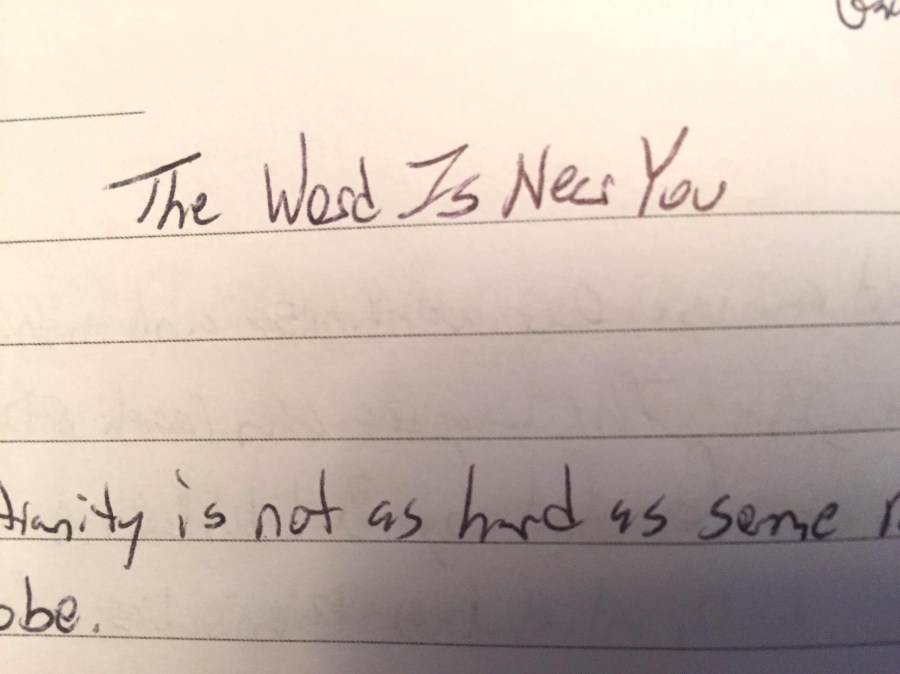 The Word Is Near You
tianity is not as hard as some
obe.